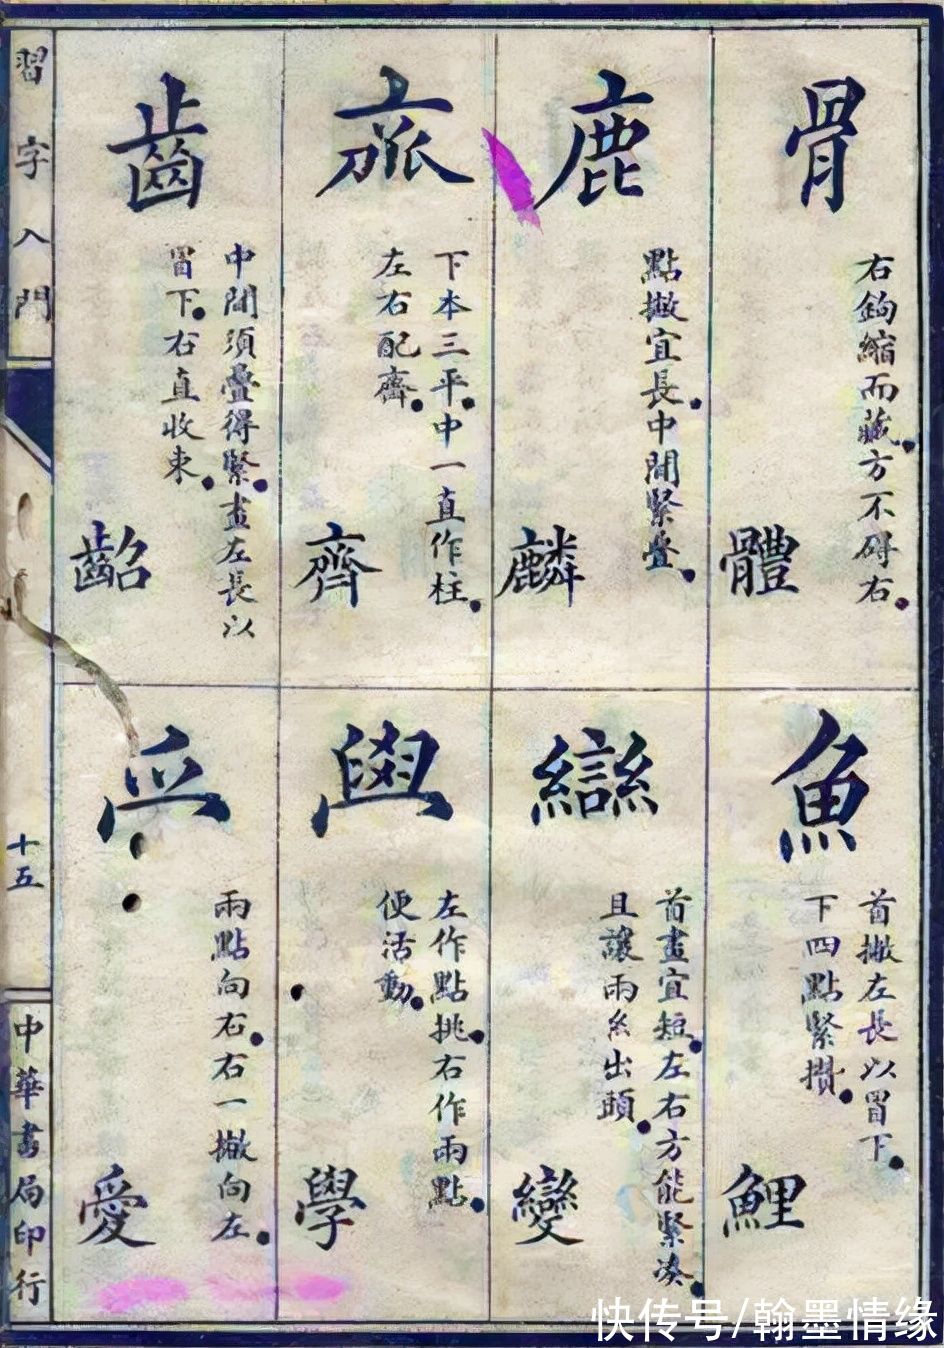 骨
右鉤縮而藏方不碍右
體
鹿
點撇宜長中間緊疊
麟
下本三平中一直作柱
左右配齊
齊
齒
中間須疊得緊畫左長以
冒下右直收束
齠
魚
首撇左長以冒下
下四點緊攢
鯉
䜌
首畫宜短左右方能緊凑
且讓兩糸出頭
變
左作點挑右作兩點
便活動
學
兩點向右右一撇向左
愛
習字入門
十五
中華書局印行
快传号/翰墨情缘